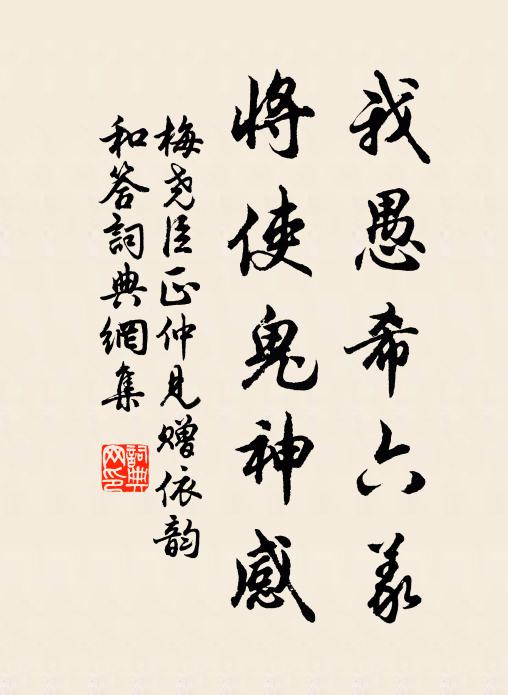 我愚希六义
将使鬼神感
梅尧臣正仲见赠依韵
和答词典網集
词典网印